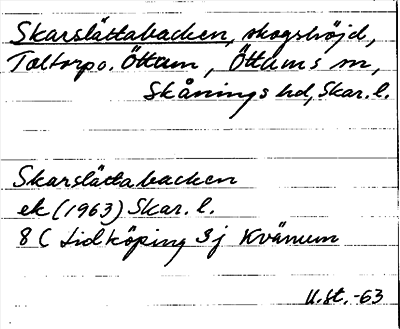 Skarslättabacken, skogshöjd,
Toltorpo. Öttum, Öttums sn,
Skånings hd, Skar. l.
Skarslättabacken
ek (1963) Skar. l.
8 C Lidköping 3j Kvänum
U.st.-63